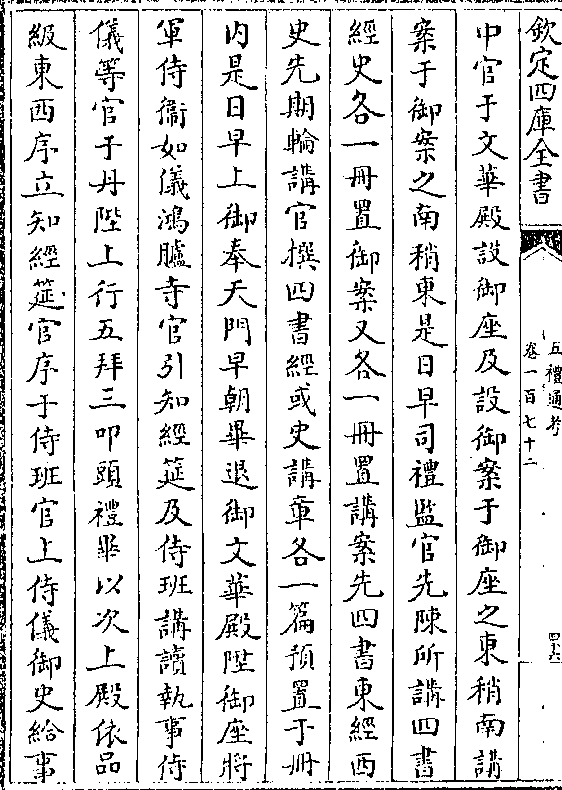 欽定四庫全書
五禮通考
卷一百七十二
四十六
中官于文華殿設御座及設御案于御座之東稍南講
案于御案之南稍東是日早司禮監官先陳所講四書
經史各一冊置御案又各一冊置講案先四書東經西
史先期輪講官撰四書經或史講章各一篇預置于冊
内是日早上御奉天門早朝畢退御文華殿陞御座將
軍侍衛如儀鴻臚寺官引知經筵及侍班講讀執事侍
儀等官于丹陛上行五拜三叩頭禮畢以次上殿依品
級東西序立知經筵官序于侍班官上侍儀御史給事